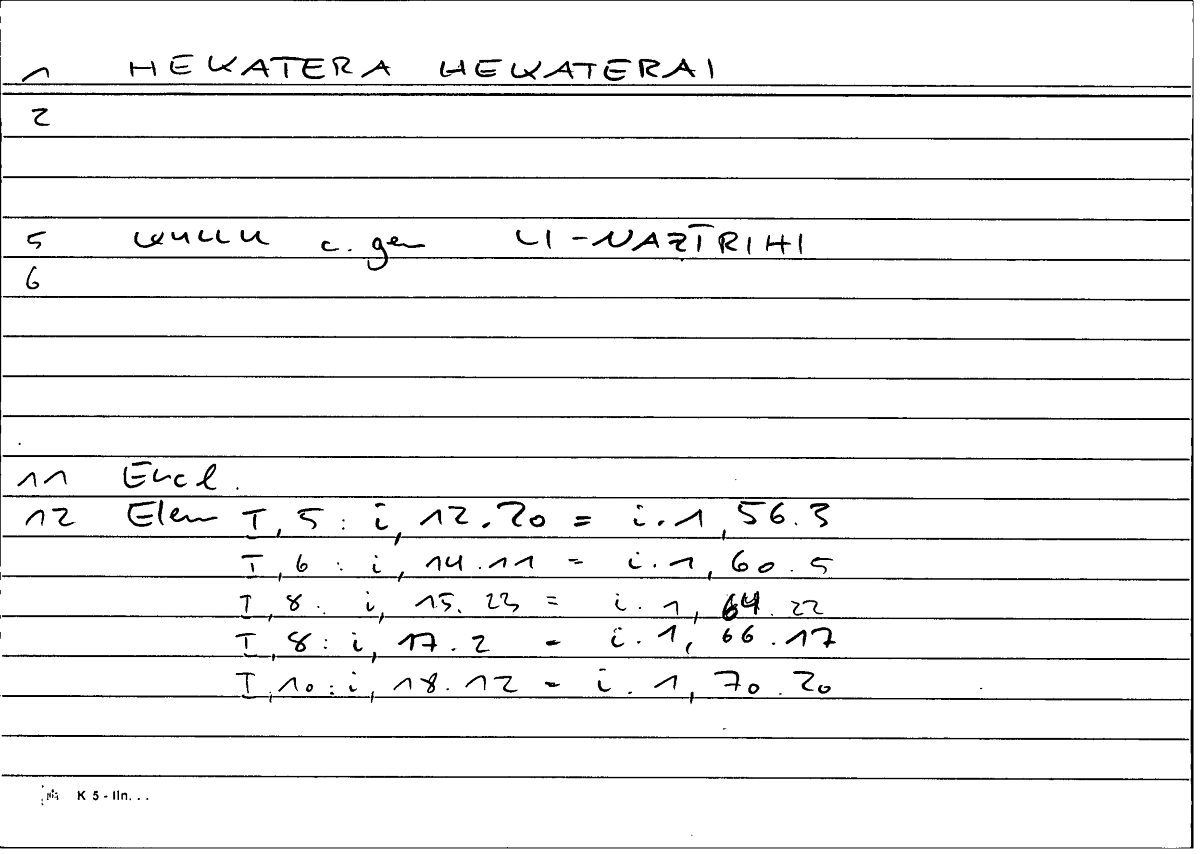 1 HEKATERA HEKATERAI
2
5 KULLU c. gen LI-NAZĪRIHI
6
11 Eucl.
12 Elem I, 5 : i, 12.20 = i.1, 56.3
I, 6 : i, 14.11 = i.1, 60.5
I, 8 : i, 15.23 = i.1, 64.22
I, 8 : i, 17.2 = i.1, 66.17
I, 10 : i, 18.12 = i.1, 70.20
K 5 - lln. . .